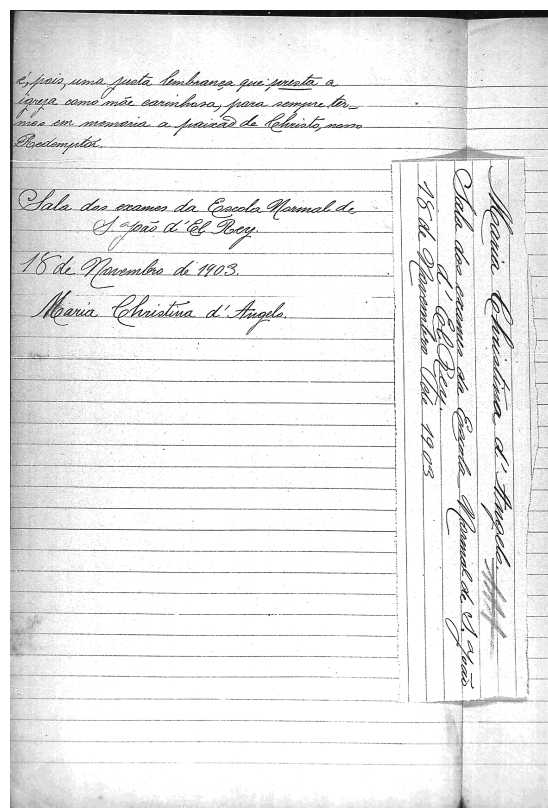 é, pois, uma justa lembrança que presta a
igreja como mãe carinhosa, para sempre ter-
mos em memoria a paixão de Christo, nosso
Redemptor.
Sala dos exames da Escola Normal de
S. João d'El Rey.
18 de Novembro de 1903.
Maria Christina d'Angelo.
Maria Christina d'Angelo
Sala dos exames da Escola Normal de S. João
d'El Rey.
18 de Novembro de 1903